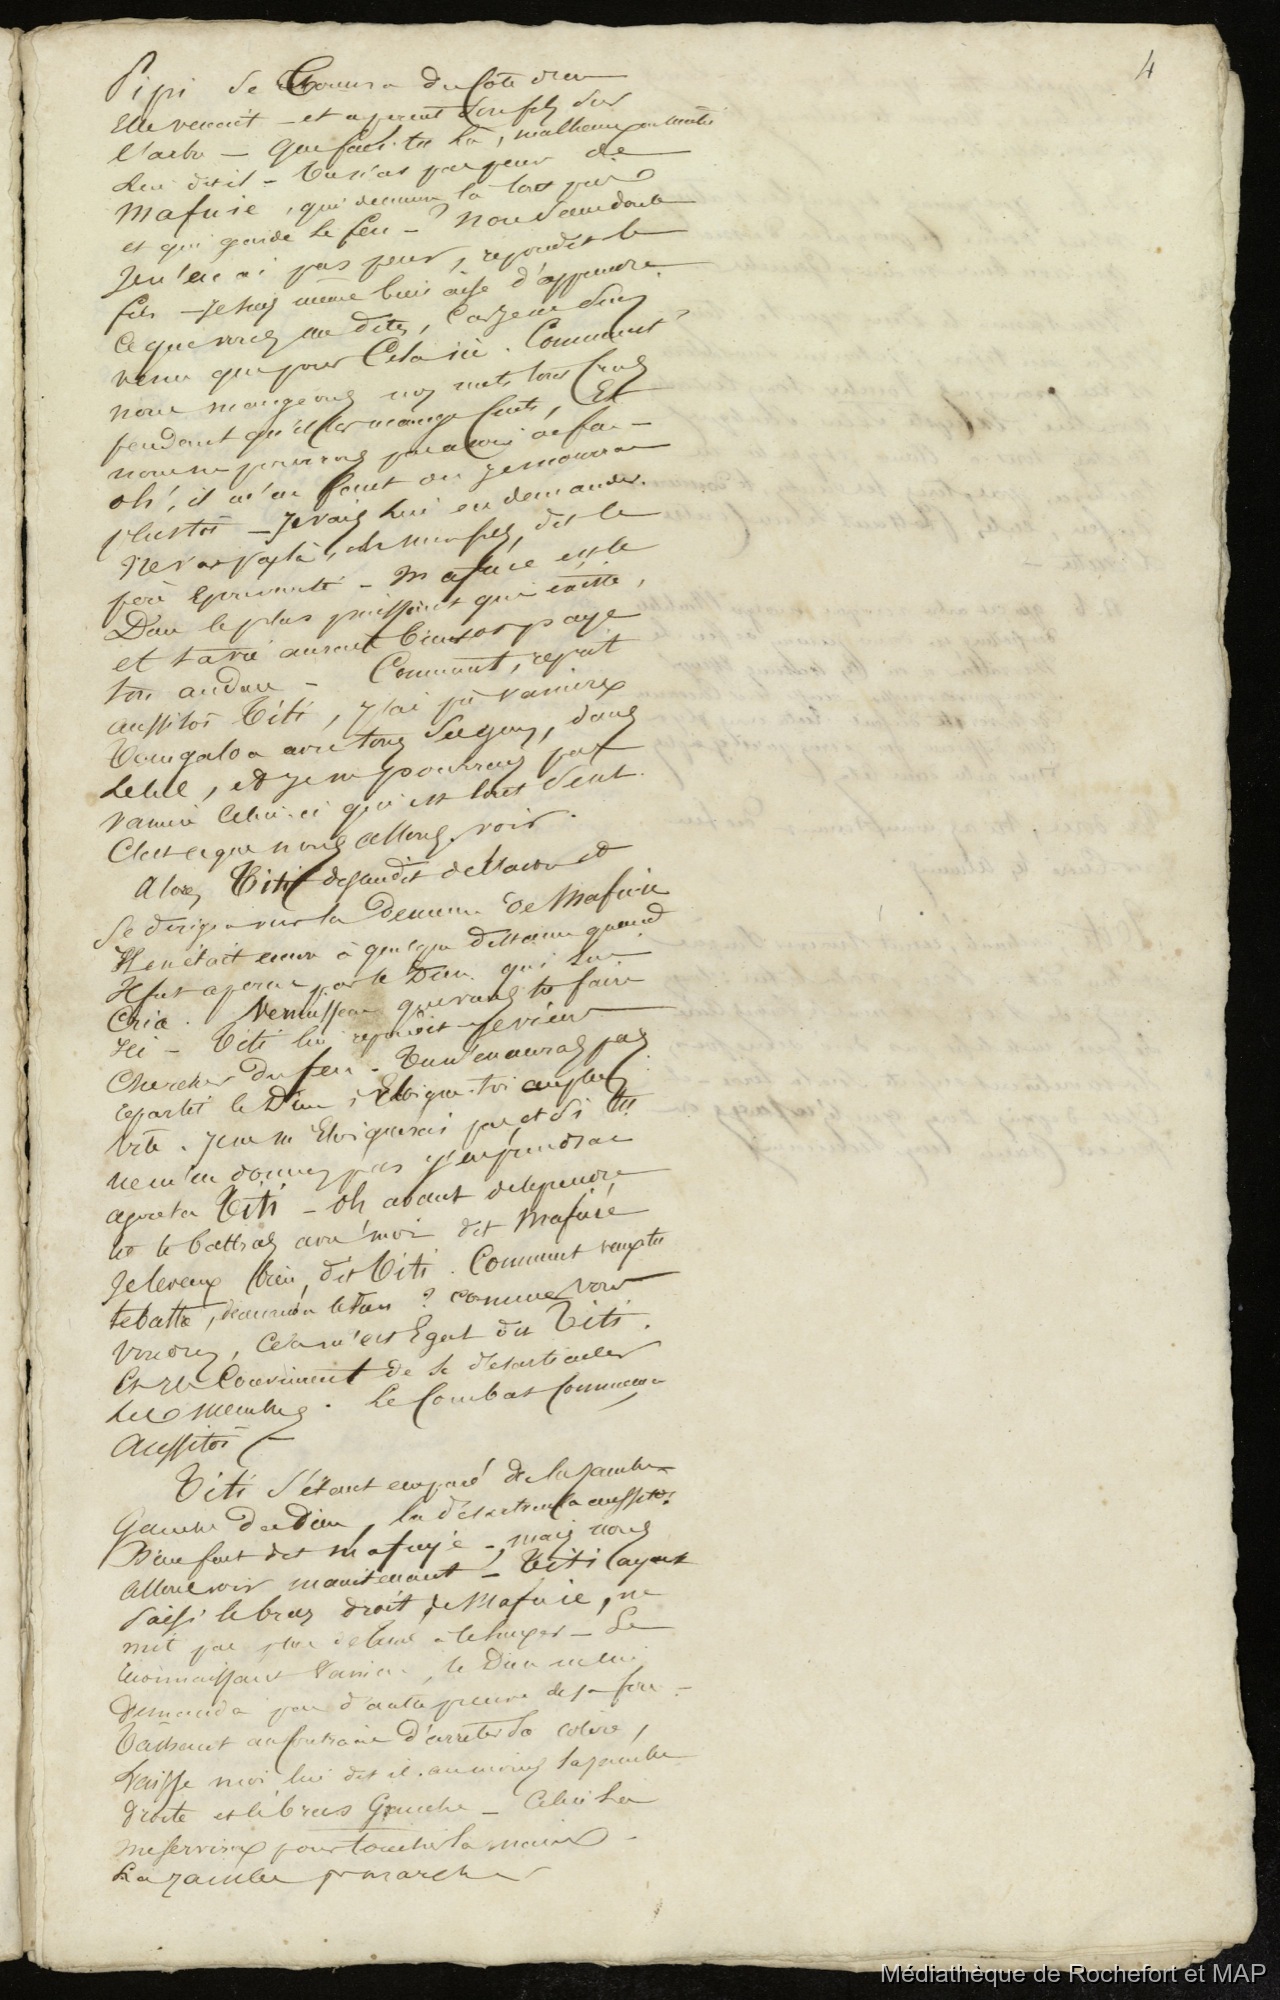 4
Pipi se tourna du côté d'où
Elle venait – et aperçut son fils sur
l'arbre – que fais-tu là, malheureux
lui dit il – tu n'as pas peur de
Mafuie, qui demeure là tout près
et qui garde le feu – ? Non sans doute
Je n'en ai pas peur, repondit le
fils – Je suis même bien aise d'apprendre
Ce que vous me dites, Car je ne suis
venu que pour Cela ici. Comment ?
nous mangeons nos mets tous Cruds
pendant qu'il les mange Cuits, Et
nous ne pourrons pas avoir de feu –
oh ! il m'en faut ou je mourrai
plustôt – Je vais lui en demander.
Ne vas pas là, oh mon fils, dit le
père Epouvanté – Mafuie est le
Dieu le plus puissant qui existe,
et ta vie aurait bientot payé
ton audace – Comment, reprit
aussitôt Titi, j'ai pû vaincre
Tangaloa avec tous ses gens, dans
le Ciel, et je ne pourrais pas
vaincre Celui-ci qui est tout seul.
C'est ce que nous allons voir.
Alors Titi descendit de l'arbre et
Se dirigea vers la Demeure de Mafuie
Il en était encore à quelque distance quand
Il fut aperçu par le Dieu qui lui
Cria. Vermisseau que viens tu faire
Ici – Titi lui repondit je viens
Chercher du feu. Tu n'en auras pas
repartit le Dieu, Eloigne-toi au plus
vite. Je ne m'Eloignerai pas et si tu
ne m'en donnes pas j'en prendrai
ajouta Titi – oh avant de le prendre
tu te battras avec moi dit Mafuié
Je le veux bien, dit Titi. Comment veux tu
te battre, demanda le Dieu ? Comme vous
voudrez, Cela m'est Egal dit Titi.
Et ils Convinrent de se desarticuler
les membres. Le Combat Commença
Aussitôt –
Titi s'étant emparé de la jambe
Gauche du Dieu, la désarticula aussitôt.
Bien fait dit Mafuié –, mais nous
allons voir maintenant – Titi ayant
saisi le bras droit de Mafuie, ne
mit pas plus de tems – Se
reconnaissant vaincu, le Dieu ne lui
Demanda pas d'autre preuve de sa force –
Tachant au contraire d'arrêter sa colère,
Laisse moi lui dit il. au moins la jambe
Droite et le bras Gauche – Celui là
me servira pour toucher la main –
La jambe pr marcher
Médiathèque de Rochefort et MAP